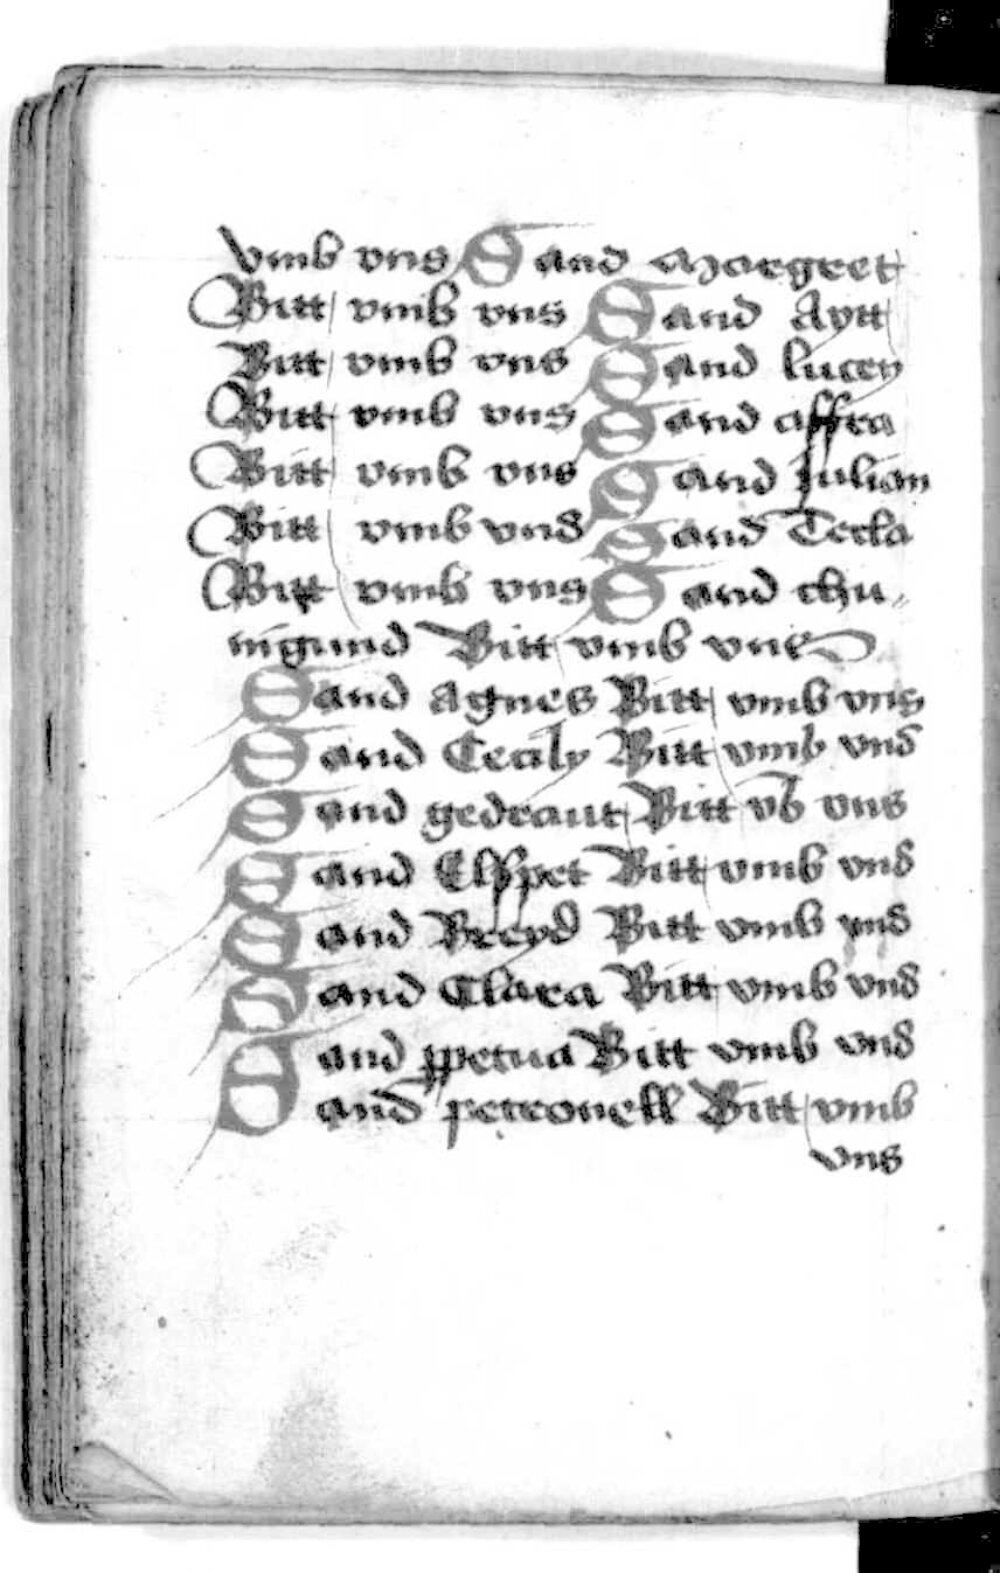 vmb vns Sand Margret
Bitt vmb vns Sand Aytt
Bitt vmb vns Sand lucey
Bitt vmb vns Sand affra
Bitt vmb vns Sand Julian
Bitt vmb vns Sand Tecla
Bitt vmb vns Sand chu
nigund Bitt vmb vns
Sand Agnes Bitt vmb vns
Sand Cecily Bitt vmb vns
Sand gedraut Bitt vb vns
Sand Elspet Bitt vmb vns
Sand Breyd Bitt vmb vns
Sand Clara Bitt vmb vns
Sand ppetua Bitt vmb vns
and petronell Bitt vmb
vns